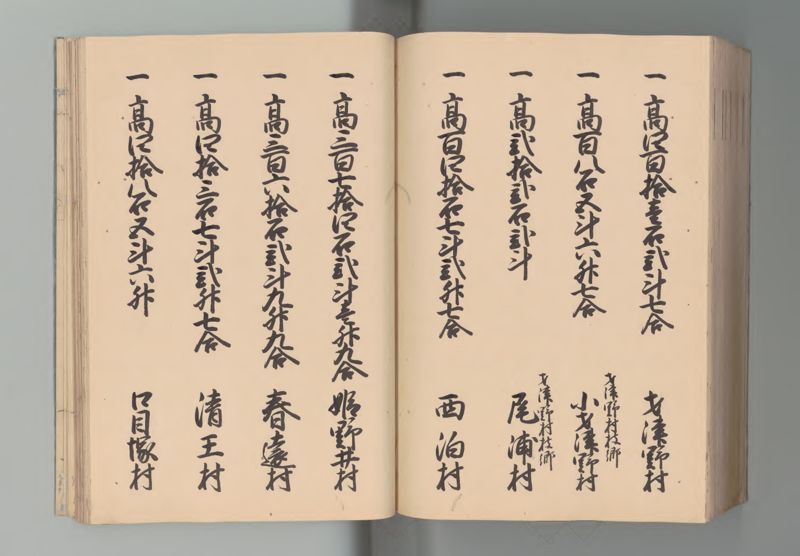 一 高四百拾壱石弐斗七合 才津野村
一 高百八石五斗六升七合 才津野村枝郷 小才津野村
一 高弐拾弐石弐斗 才津野村枝郷 尾浦村
一 高百四拾石七斗弐升七合 西泊村
一 高三百七拾四石弐斗壱升九合 姫野井村
一 高三百六拾石弐斗九升九合 春遠村
一 高四拾三石七斗弐升七合 清王村
一 高四拾八石五斗六升 口目塚村